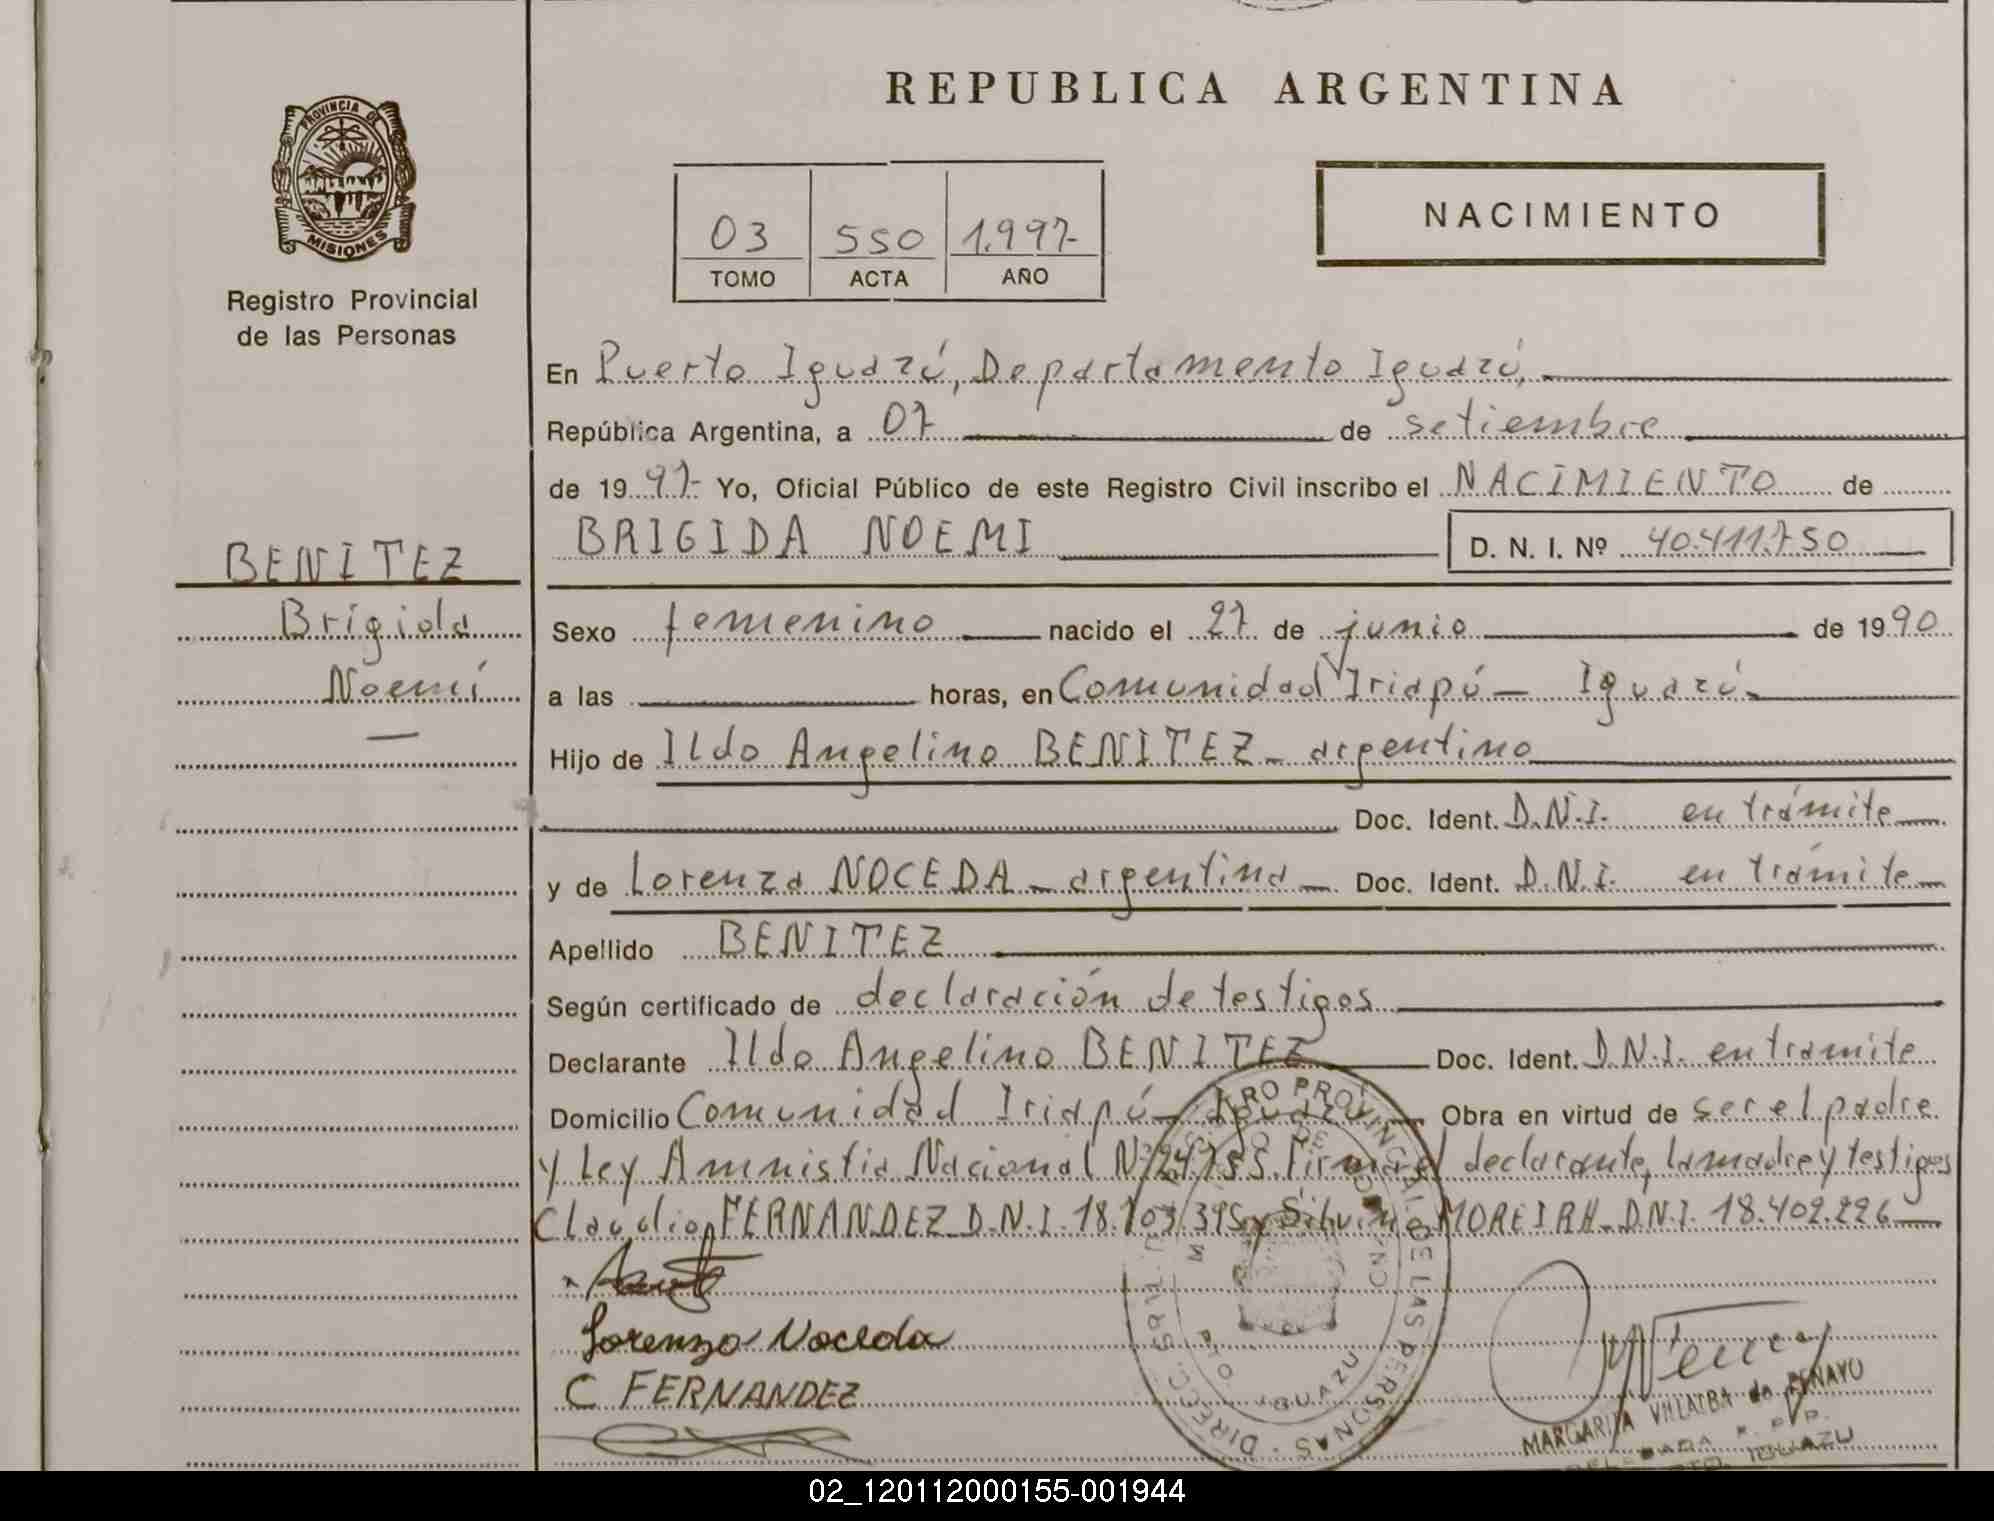 REPUBLICA ARGENTINA
PROVINCIA DE
MISIONES
Registro Provincial
de las Personas
03 550 1.997-
TOMO ACTA AÑO
NACIMIENTO
En Puerto Iguazú, Departamento Iguazú,
República Argentina, a 07 de setiembre
de 1997- Yo, Oficial Público de este Registro Civil inscribo el NACIMIENTO de
BRIGIDA NOEMI D. N. I. Nº 40.411.750
BENITEZ
Brígida
Noemí
Sexo femenino nacido el 27 de junio de 1990
a las horas, en Comunidad Iriapú - Iguazú-
Hijo de Ildo Angelino BENITEZ - argentino
Doc. Ident. D.N.I. en trámite
y de Lorenza NOCEDA - argentina - Doc. Ident. D.N.I. en trámite
Apellido BENITEZ
Según certificado de declaración de testigos
Declarante Ildo Angelino BENITEZ Doc. Ident. D.N.I. en tramite
Domicilio Comunidad Iriapú - Iguazú - Obra en virtud de ser el padre
y Ley Amnistia Nacional Nº 24.755. Firman el declarante, la madre y testigos
Claudio FERNANDEZ D.N.I. 18.703.395 y MOREIRA - D.N.I. 18.402.226
Lorenzo Noceda
C FERNANDEZ
REGISTRO PROVINCIAL DE LAS PERSONAS
MARGARITA VILLALBA de PENAYO
IGUAZU
02_120112000155-001944